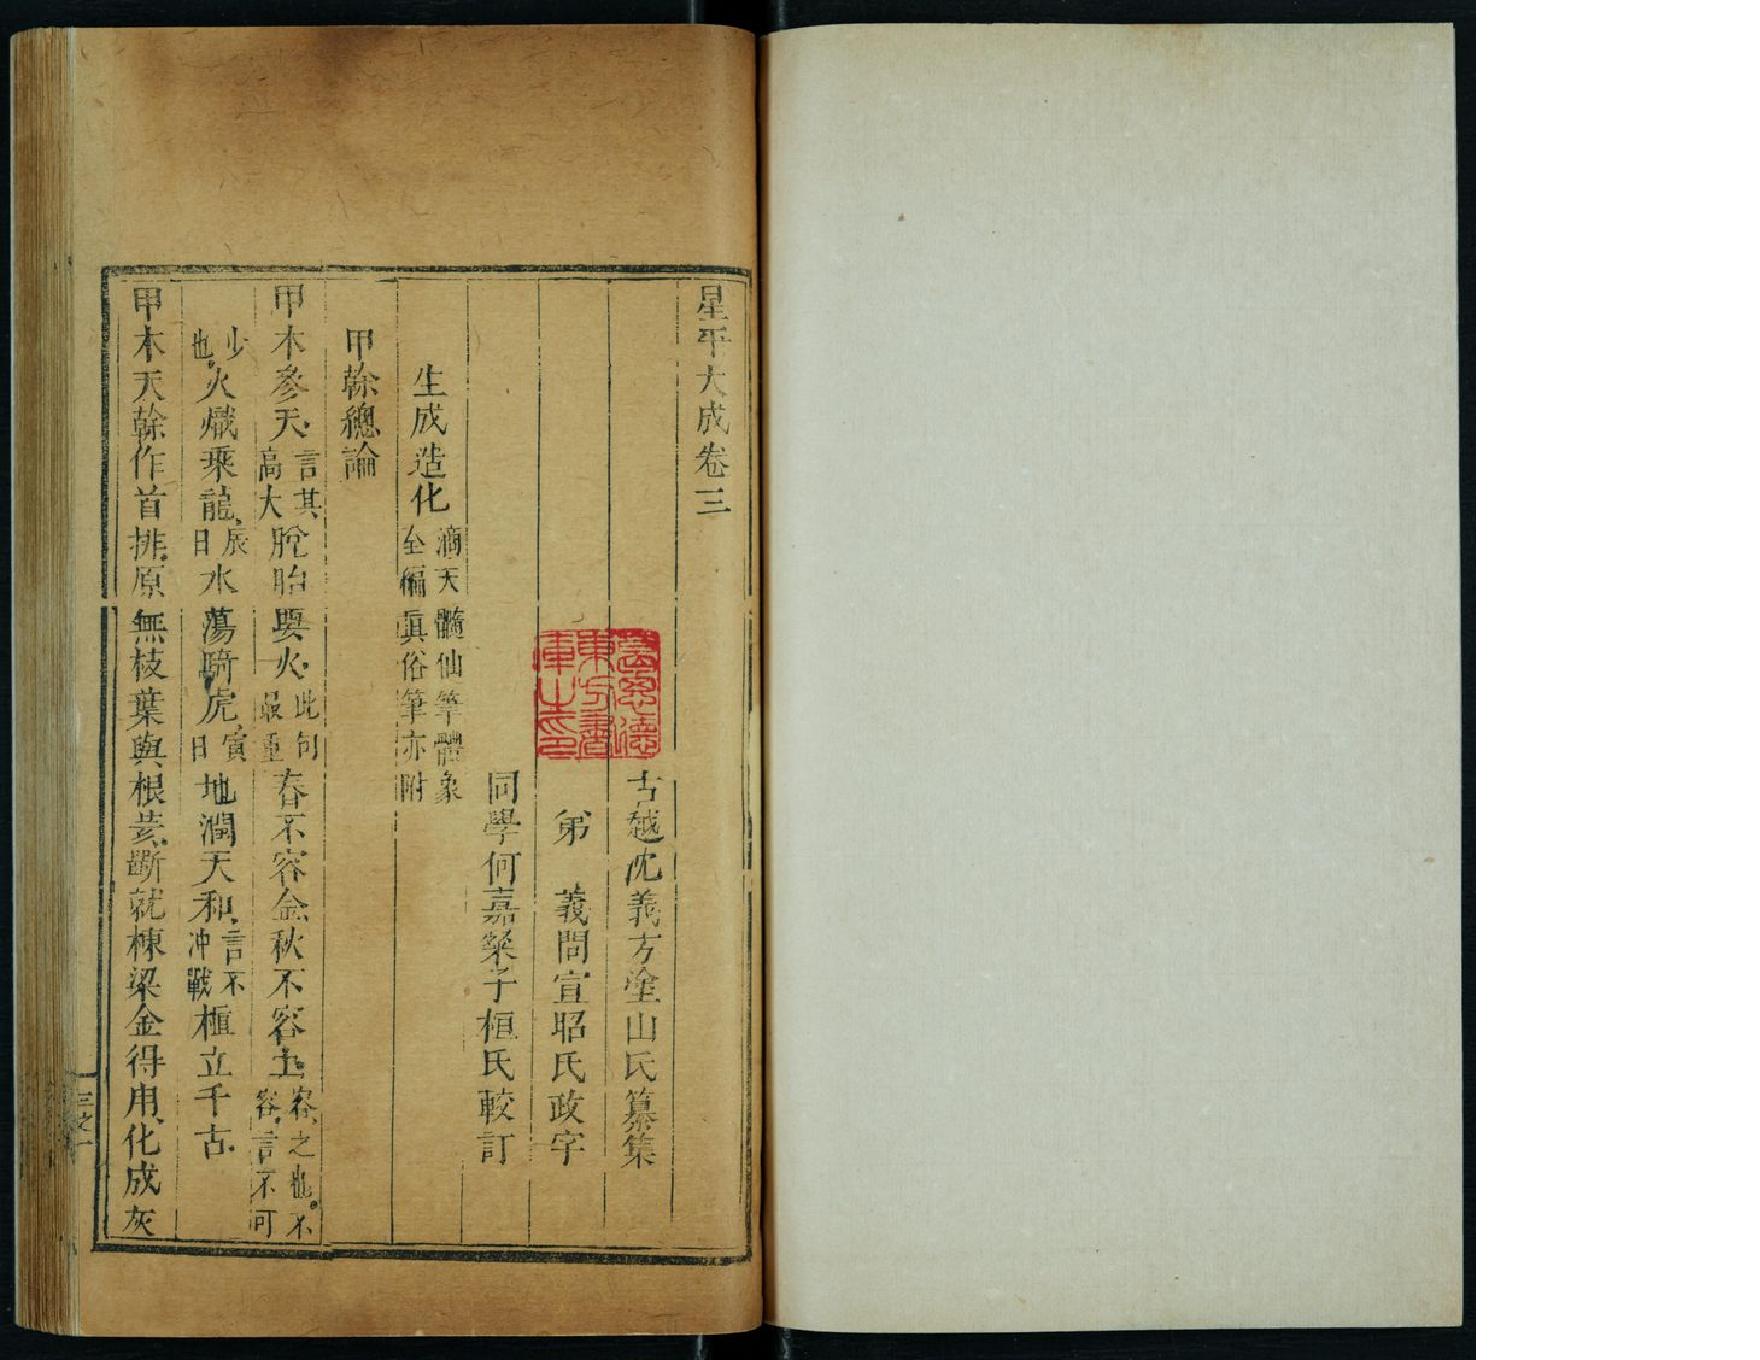 星平大成卷三
古越沈義方塗山氏纂集
弟　義問宣昭氏政字
同學何嘉榮子桓氏較訂
生成造化滴天髓仙竿體象全編眞俗筆亦附
甲幹總論
甲木參天言其高大脫胎要火此句最重春不容金秋不容土容之也不容言不可
少也火熾乘龍辰日水蕩騎虎寅日地潤天和言不冲戰植立千古
甲木天幹作首排原無枝葉與根荄斷就棟梁金得用化成灰
三之一